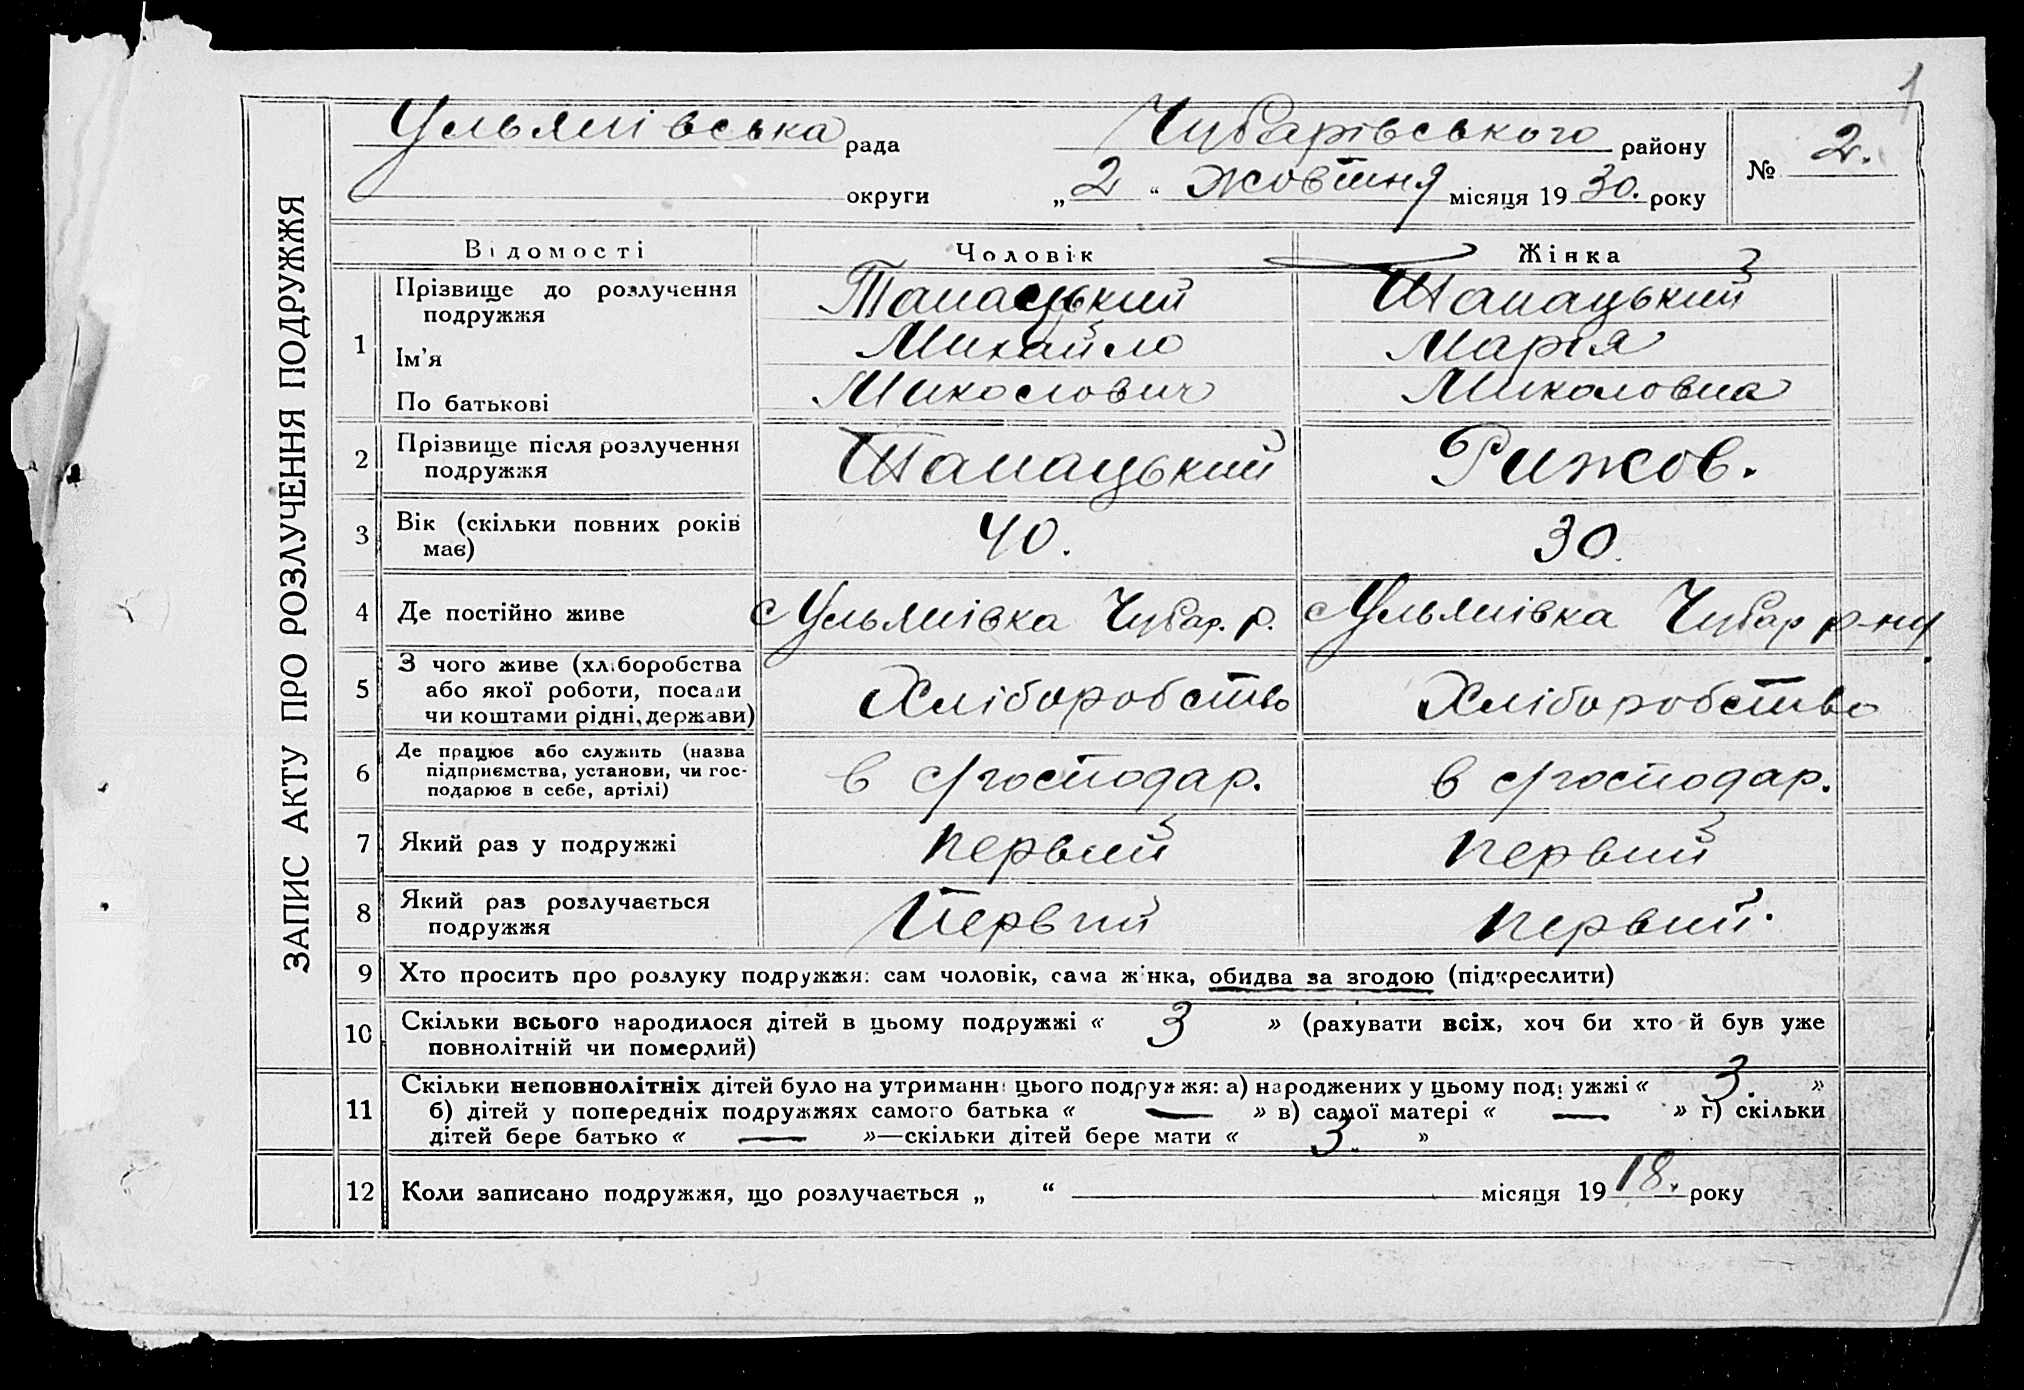 1
ЗАПИС АКТУ ПРО РОЗЛУЧЕННЯ ПОДРУЖЖЯ
Ульянівська рада Чубарівського району № 2.
округи „2“ жовтня місяця 1930. року
Відомості Чоловік Жінка
1 Прізвище до розлучення подружжя Танацький Танацький
Ім'я Михайло Марія
По батькові Миколович Миколовна
2 Прізвище після розлучення подружжя Танацький Рижов.
3 Вік (скільки повних років має) 40. 30.
4 Де постійно живе с Ульянівка Чубар. р. с Ульянівка Чубар р-ну
5 З чого живе (хліборобства
або якої роботи, посади
чи коштами рідні, держави) Хліборобство Хліборобство
6 Де працює або служить (назва
підприємства, установи, чи гос-
подарює в себе, артілі) в с/господар. в с/господар.
7 Який раз у подружжі первий первий
8 Який раз розлучається
подружжя Первий первий.
9 Хто просить про розлуку подружжя: сам чоловік, сама жінка, обидва за згодою (підкреслити)
10 Скільки всього народилося дітей в цьому подружжі « 3 » (рахувати всіх, хоч би хто й був уже
повнолітній чи померлий)
11 Скільки неповнолітніх дітей було на утриманні цього подружжя: а) народжених у цьому подружжі « 3. »
б) дітей у попередніх подружжях самого батька « — » в) самої матері « — » г) скільки
дітей бере батько « — »—скільки дітей бере мати « 3. »
12 Коли записано подружжя, що розлучається „ “ місяця 1918. року